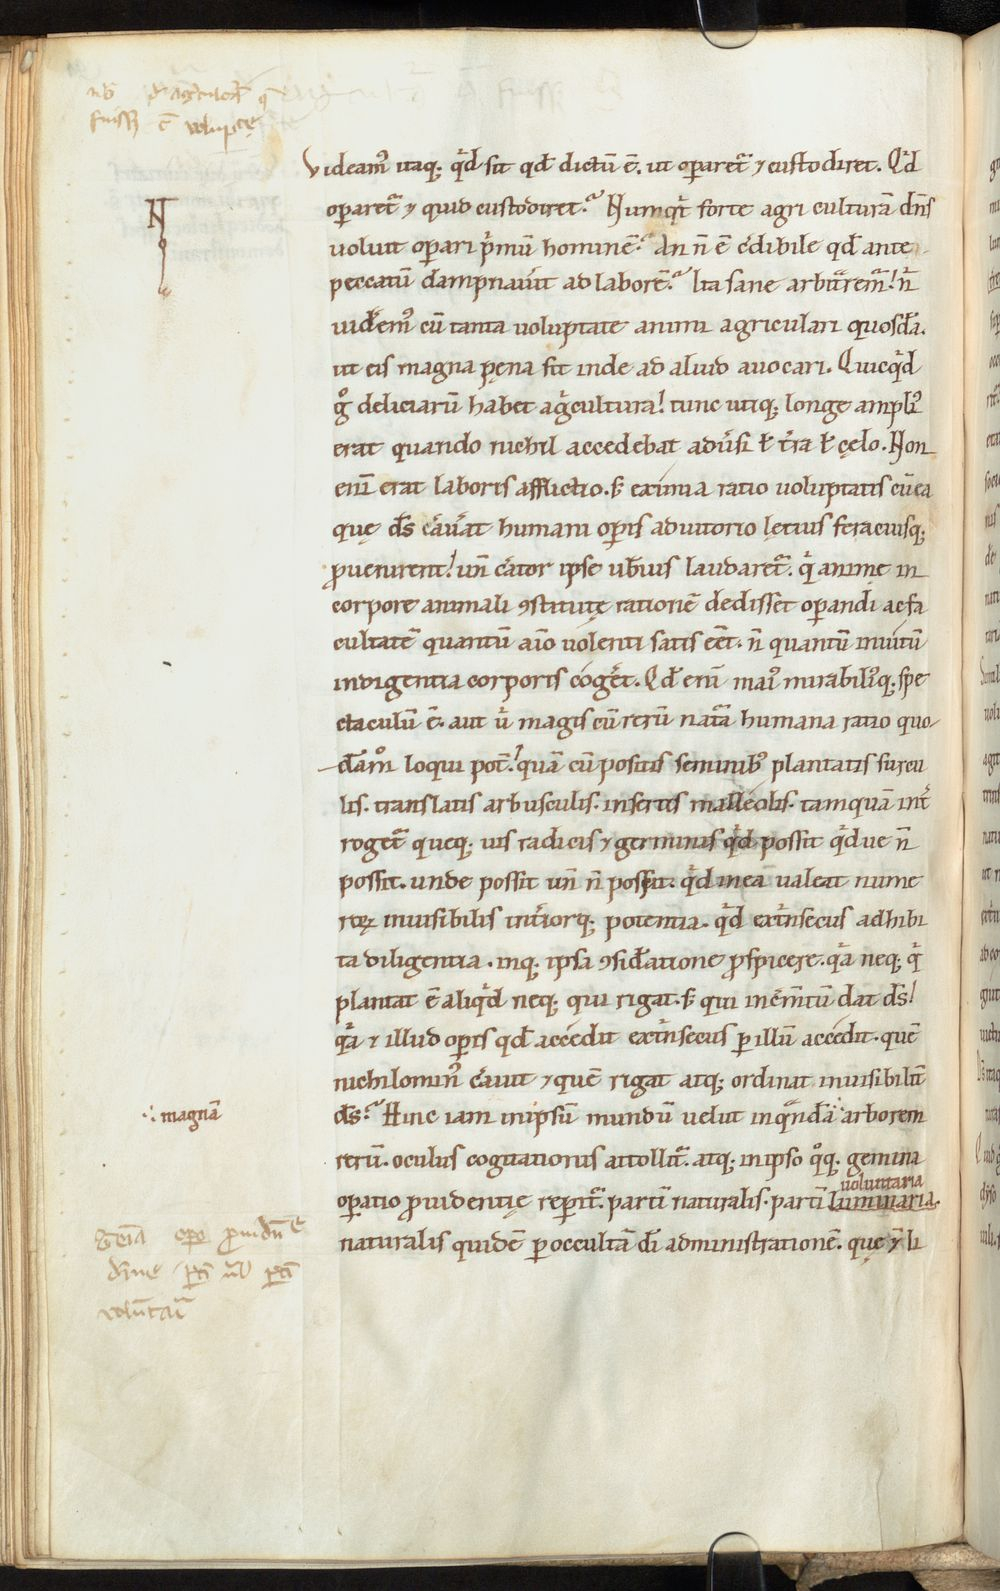 fuisse cū voluptate
N̄o
Videam᷒ itaq; qͥd sit qđ dictū ē. ut oparet᷑ ⁊ custodiret. Qͥd
oparet᷑ ⁊ quid custodiret? Numqͥd forte agri culturā dn̄s
uoluit opari pͥmū hominē? An n̄ ē c̄dibile qđ ante
peccatū dampnauit ad laborē? Ita sane arbitͣrem᷑! n̄
uiđem᷒ cū tanta uoluptate animi agriculari quosdā.
ut eis magna pęna sit inde ad aliud auocari. Quicqͥd
gͦ deliciarū habet agͥcultura! tunc utiq; longe ampli᷒
erat quando nichil accedebat adūsi ł t̄ra ł cęlo. Non
enī erat laboris afflictio. s; exima ratio uoluptatis cū ea
quę ds̄ c̄auͣat humani opis adiutorio lętius feraciusq;
prouenirent! un̄ c̄ator ipse uƀius laudaret᷑. qͥ anime in
corpore animali ꝯstitutę rationē dedisset operandi ac fa
cultatē quantū aīo uolenti satis eēt. n̄ quantū inuitū
indigentia corporis cogeͣt. Qđ enī mai᷒ mirabili᷒q; spe
ctaculū ē. aut uͥ magis cū rerū nat̄a humana ratio quo
dāmͦ loqui pot̄! quā cū positis seminib᷒ plantatis surcu
lis. translatis arbusculis. insertis malleolis. tamquā int̄
roget᷑ queq; uis radicis ⁊ germinis qͥd possit qͥdue n̄
possit. unde possit un̄ n̄ possit. qͥd in eā ualeat nume
roꝝ inuisibilis int̄iorq; potentia. qͥd ext̄nsecus adhibi
ta diligentia. inq; ipsa ꝯsiđatione pͦspicere. qͥa neq; qͥ
plantat ē aliqͥd neq; qui rigat. s; qui inc̄m̄tū dat ds̄!
qͥa ⁊ illud opis qđ accedit ext̄nsecus ꝑ illū accedit. quē
nichilomin᷒ c̄auit ⁊ quē rigat atq; ordinat inuisibilit̄
ds̄? Hinc iam in ipsū mundū uelut in qͣndā ∵ arborem
∵ magnā
rerū. oculus cogitationis attollit᷑. atq; in ipso qͦq; gemina
uoluntaria
opatio prouidentię reperit᷑. partī naturalis. partī luminaria.
naturalis quidē ꝑ occultā di administrationē. quę ⁊ li